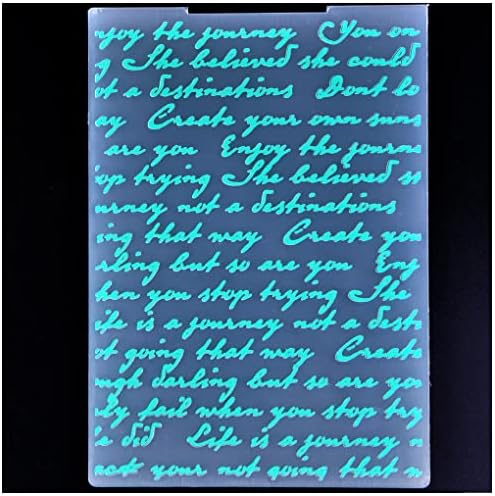 njoy the journey You on
g She believed she could
ot a destinations Dont bo
ay Create your own suns
are you Enjoy the journe
op trying She believed s
urney not a destinations
ing that way Create you
rling but so are you Enj
hen you stop trying She
ife is a journey not a desti
ot going that way Create
ugh darling but so are you
ly fail when you stop try
e did Life is a journey n
back your not going that